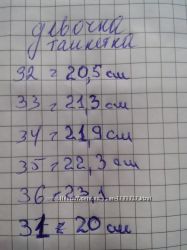 девочка
танкетка
32 = 20,5 см
33 = 21,3 см
34 = 21,9 см
35 = 22,3 см
36 = 23,1
31 = 20 см